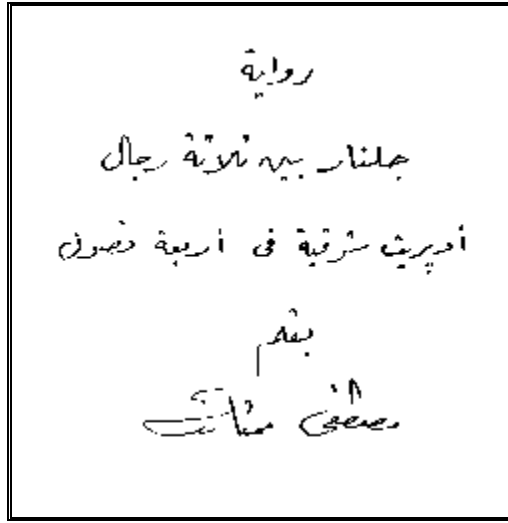 رواية
جلنار بين ثلاثة رجال
أوبريت شرقية فى أربعة فصول
بقلم
مصطفى ممتاز